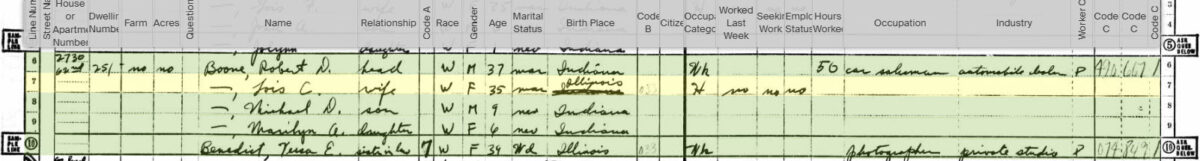 Line Num Street N House or Apartment Number Dwelling Number Farm Acres Question Name Relationship Code A Race Gender Age Marital Status Birth Place Code B Citize Occupa Catego Worked Last Week Seekin Work Emplo Status Hours Worked Occupation Industry Worker C Code C Code C Code C
—, daughter W F nev Indiana
SAMPLE LINE 5 ASK QUES. BELOW
6 2730 251 no no Boone, Robert D. head W M 37 mar Indiana Wk 50 car salesman automobile P 6
7 —, Lois C. wife W F 35 mar Illinois H no no no 7
8 —, Michael D. son W M 9 nev Indiana 8
9 —, Marilyn A. daughter W F 6 nev Indiana 9
SAMPLE LINE 10 Benedict, E. 7 W F 34 Wd Illinois 033 Wk photographer private studio P 10 ASK QUES. BELOW